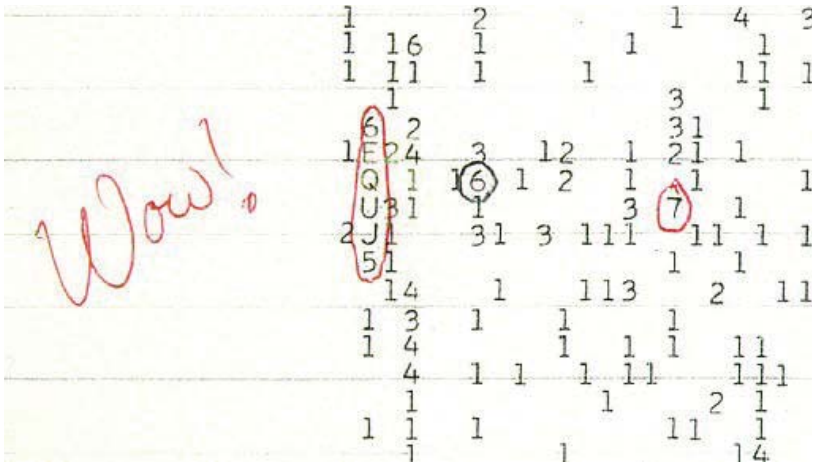 1 2 1 4 3
1 16 1 1 1
1 11 1 1 11 1
1 3 1
6 2 31
1 E24 3 12 1 21 1
Wow! Q 1 16 1 2 1 1 1
U31 1 3 7 1
2 J1 31 3 111 11 1 1
51 1 1
14 1 113 2 11
1 3 1 1 1
1 4 1 1 1 11
4 1 1 1 11 111
1 1 2 1
1 1 1 11 1
1 1 14